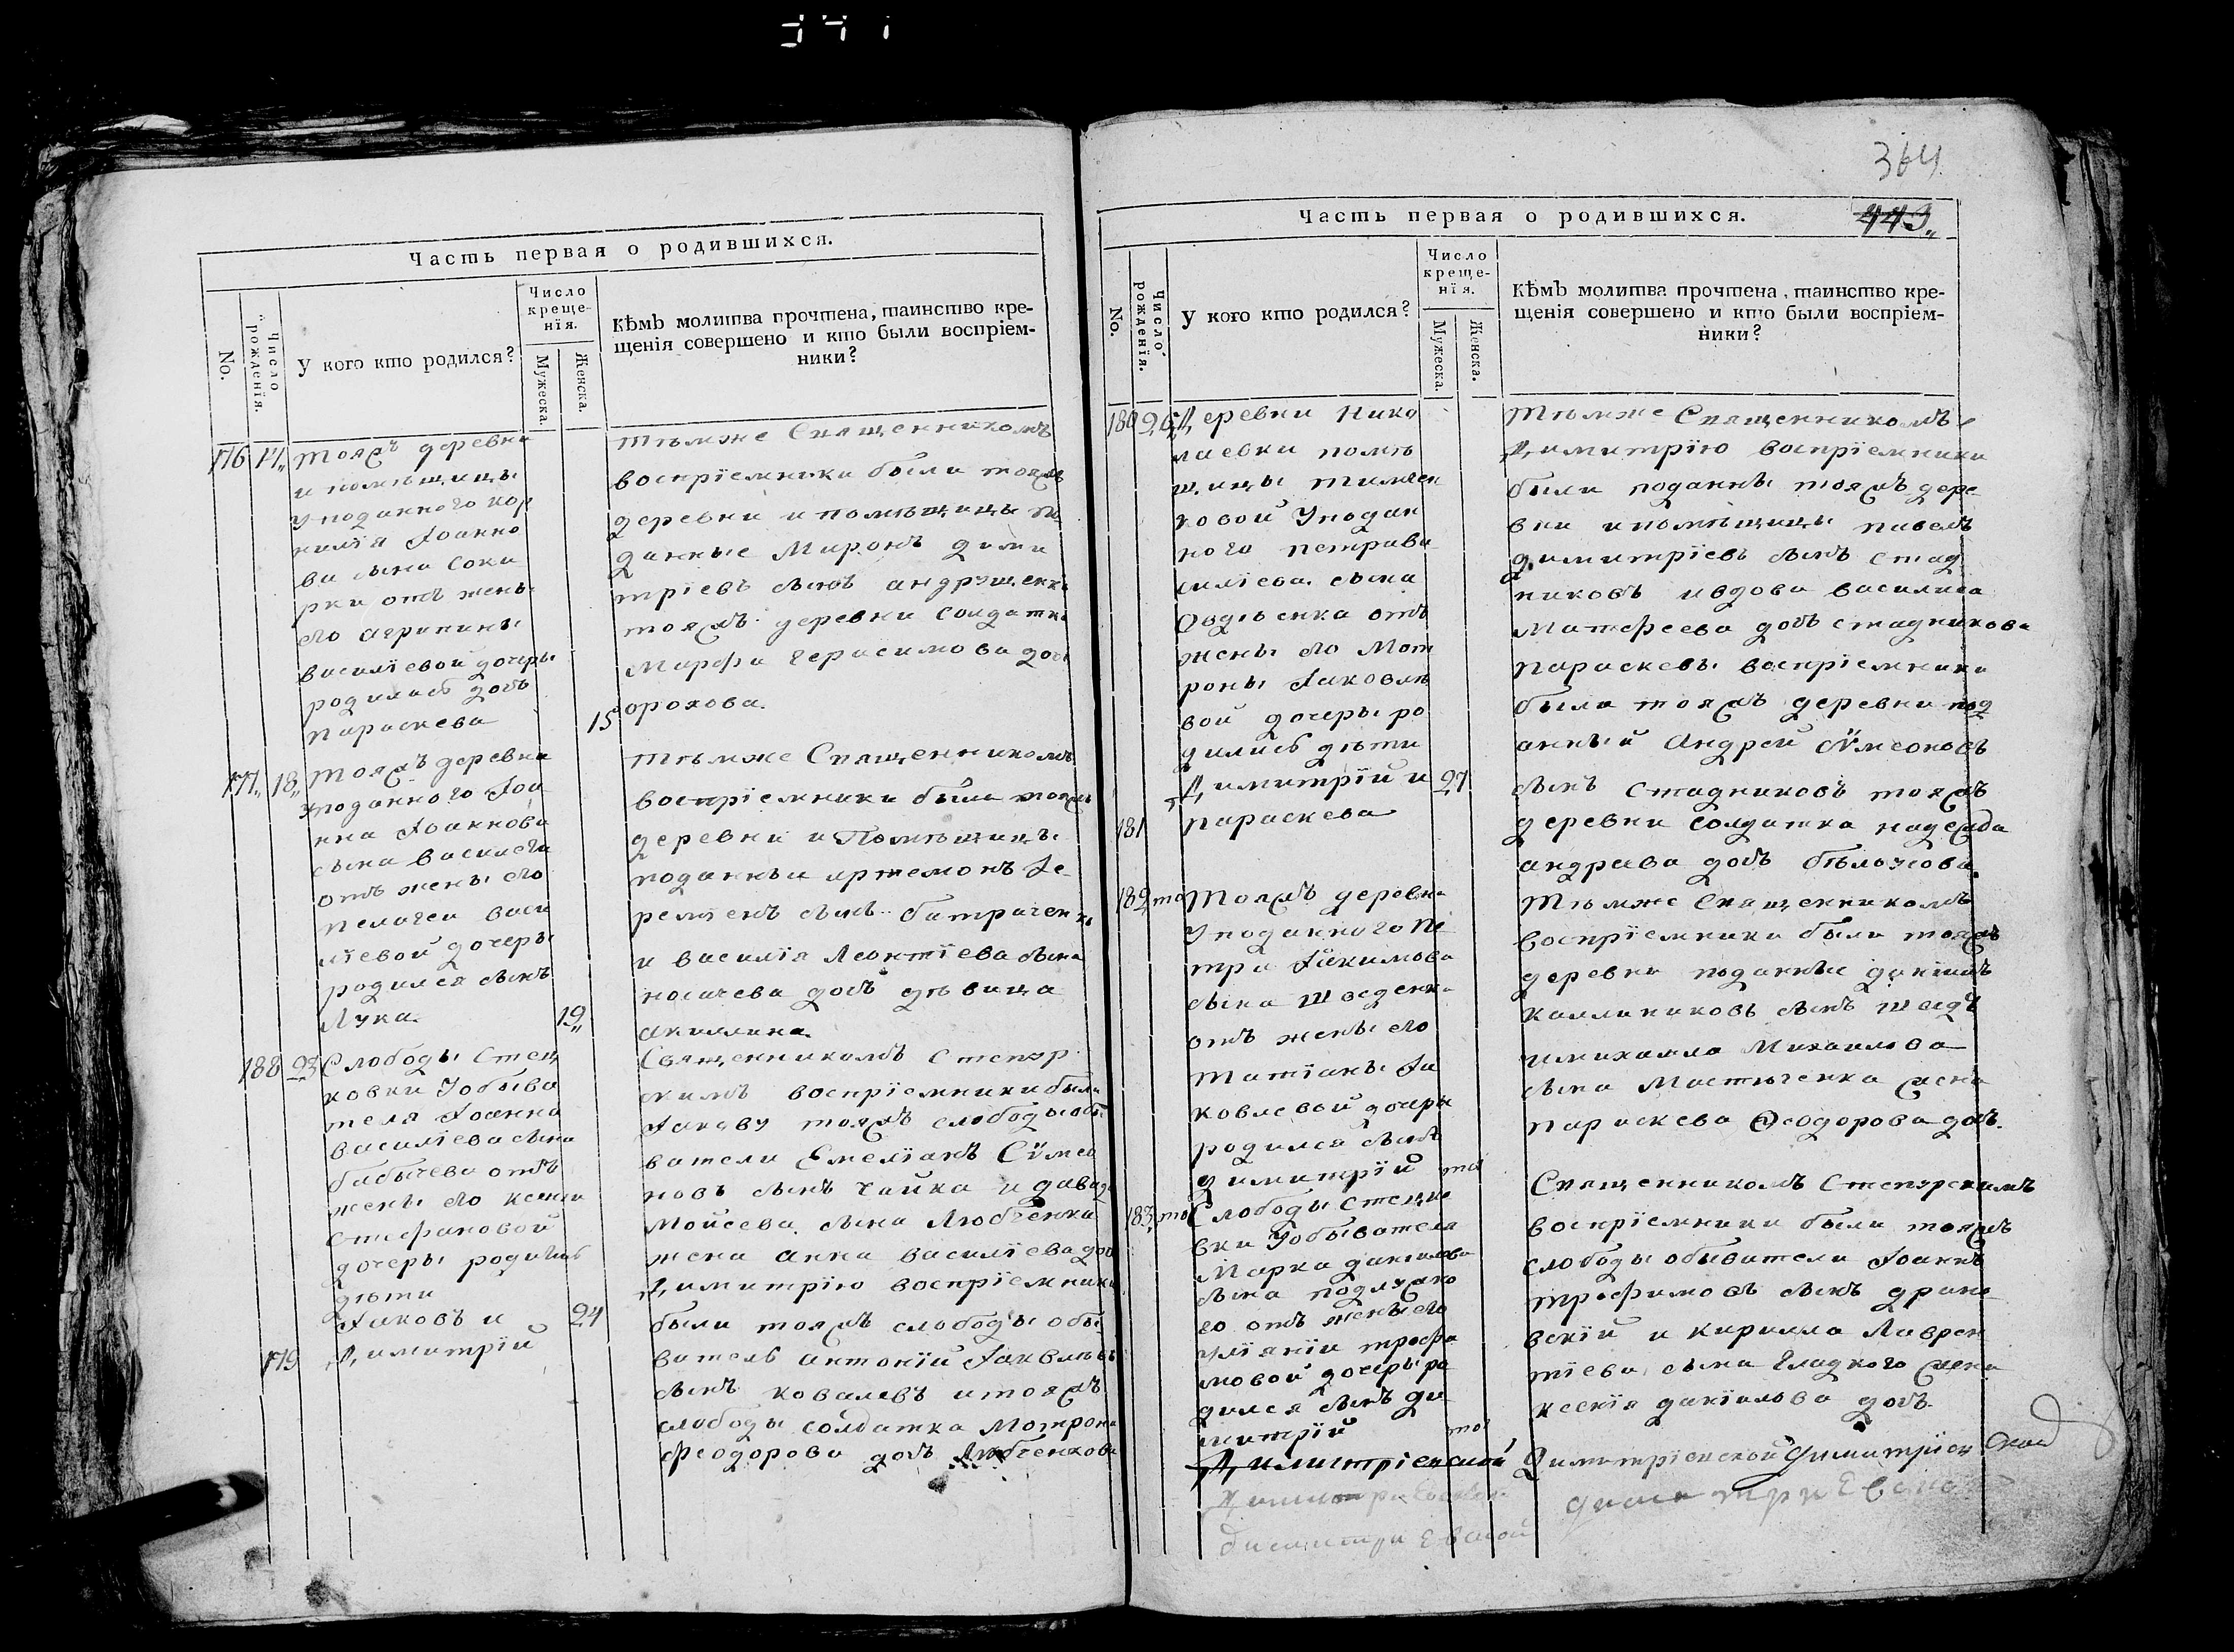 Часть первая о родившихся.
No.
Число рожденїя.
У кого кто родился?
Число
креще-
нїя.
Мужеска.
Женска.
Кѣмъ молитва прочтена, таинство кре-
щенїя совершено и кто были воспрїем-
ники?
176 17 тояжъ деревни
и помѣщицы
у поданного кор
нилїя Іоанно
ва сына соки
рки отъ жены
его агрипины
василїевой дочеры
родилась дочь
параскева 15
тѣмже Священникомъ
воспрїемники были тояжъ
деревни и помѣщицы по
данные Миронъ дими
трїевъ сынъ андрущенко
тояжъ деревни солдатка
Марфа герасимова дочь
орохова.
177 18 тояжъ деревни
у поданного Іоа
нна Іоаннова
сына василега
отъ жены его
пелагеи васи
лїевой дочеры
родился сынъ
Лука. 19
тѣмже Священникомъ
воспрїемники были тояжъ
деревни и Помѣщицы
поданныи артемонъ Іе-
ремїенъ сынъ батраченко
и василїя Леонтїева сына
носачева дочь дѣвица
акилина.
188 23 Слободы Стец
ковки У обыва
теля Іоанна
василїева сына
бабычева отъ
жены его ксенїи
стефановой
дочеры родились
дѣти
Іаковъ и 24
179 Димитрїй
Священникомъ Степур
скимъ воспрїемники были
Іакову тояжъ слободы обы
ватели Емелїанъ Сѵмео
новъ сынъ чайка и давида
Мойсева сына Любченка
жена анна василїева дочь
Димитрїю воспрїемники
были тояжъ слободы обы
ватель антонїй Іаковлевъ
сынъ ковалевъ и тояжъ
слободы солдатка Мотрона
феодорова дочь Любченкова
364
449
Часть первая о родившихся.
No.
Число рожденїя.
У кого кто родился?
Число
креще-
нїя.
Мужеска.
Женска.
Кѣмъ молитва прочтена, таинство кре-
щенїя совершено и кто были воспрїем-
ники?
180 26 Деревни Нико
лаевки помѣ
щицы тимчен
ковой У подан
ного петра ва
силїева сына
отъ
жены его Мот
роны Іаковлѣ
вой дочеры ро
дились дѣти
Димитрїй и 27
181 параскева
тѣмже Священникомъ
Димитрїю воспрїемники
были поданны тояжъ дере
вни и помѣщицы павелъ
димитрїевъ сынъ стад
никовъ и вдова василиса
Матфеева дочь стадникова
параскевы воспрїемники
были тояжъ деревни под
анный андрей сѵмеоновъ
сынъ стадниковъ тояжъ
деревни солдатка надежда
андрїева дочь бѣлоусова.
182 то Тояжъ деревни
У поданного Пе
тра Іакимова
сына шведенка
отъ жены его
татїаны Іа
ковлевой дочеры
родился сынъ
димитрїй то
тѣмже Священникомъ
воспрїемники были тояжъ
деревни поданны данїилъ
каллиниковъ сынъ шведъ
и михаила Михаилова
сына Мастюченка жена
параскева Ѳеодорова дочь.
183 то Слободы Стецко
вки У обывателя
Марка данїилова
сына
го отъ жены его
улїянїи трофи
мовой дочеры ро
дился сынъ ди
митрїй то
Священникомъ Степурскимъ
воспрїемники были тояжъ
слободы обыватели Іоаннъ
трофимовъ сынъ дранов
вскїй и кирилла Лаврен
тїева сына гладкого жена
ксенїя данїилова дочь.
Димитрїевской Димитрїевской Димитрїевской